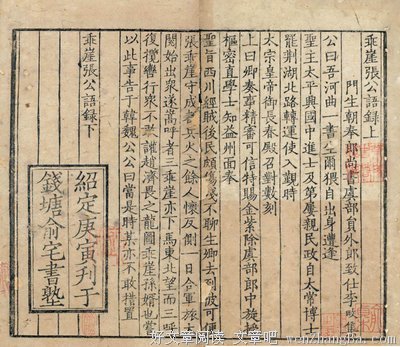 乖崖張公語錄上
門生朝奉郎尚書虞部員外郎致仕李畋集
公曰吾河曲一書生爾猥自出身遭逢
聖主太平興國中進士及第屢親民政自太常博士
罷荊湖北路轉運使入覲時
太宗皇帝御長春殿召對數刻
上曰卿奏事精審可信特賜金紫除虞部郎中旋授
樞密直學士知益州面奉
聖旨西川經賊後民頗傷殘不聊生卿去到彼可
張乖崖守成都兵火之餘人懷反側一日合軍旅大
閱始出衆遂嵩呼者三乖崖亦下馬東北望而三呼
復攬轡行衆不敢讙趙濟畏之龍圖乖崖孫婿也嘗
以此事告于韓魏公公曰當是時某亦不敢措置
乖崖張公語錄下
紹定庚寅刊于
錢塘俞宅書塾
好文章阅读 文章吧
www.wenzhangba.com